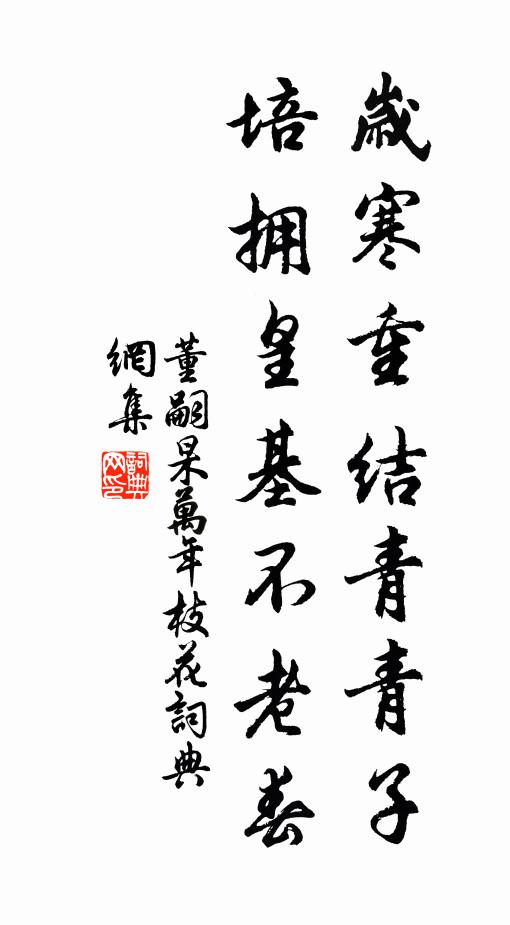 歲寒重結青青子
培拥皇基不老春
董嗣杲萬年枝花詞典
網集
詞典网印